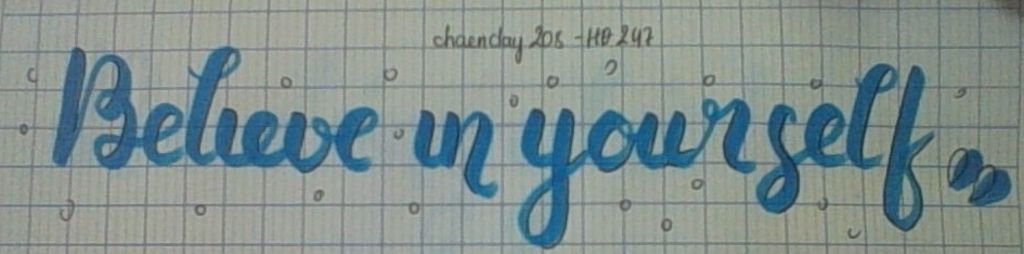 chaenday 208 - HQ 247
Believe in yourself